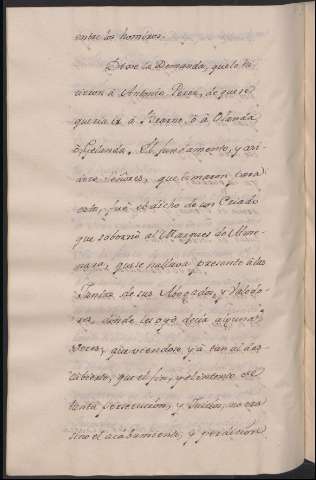 entre los hombres.
Pone la Demanda, que le hi
cieron á Antonio Perez, de que se
queria ir á Bearne, ó á Olanda
ó Gelanda. El fundamento, y ori
Señores, que tomaron para
esto, fue el dicho de un Criado
que soborno al Marques de Alme
nara, que se hallava presente á las
Juntas de sus Abogados, y Valedo
res, donde les oyó decir algunas
veces, que viendose yá tan al des
cubierto, que el fin, y el intento de
tanta persecucion, y Juicios, no era
sino el acabamiento, y perdicion